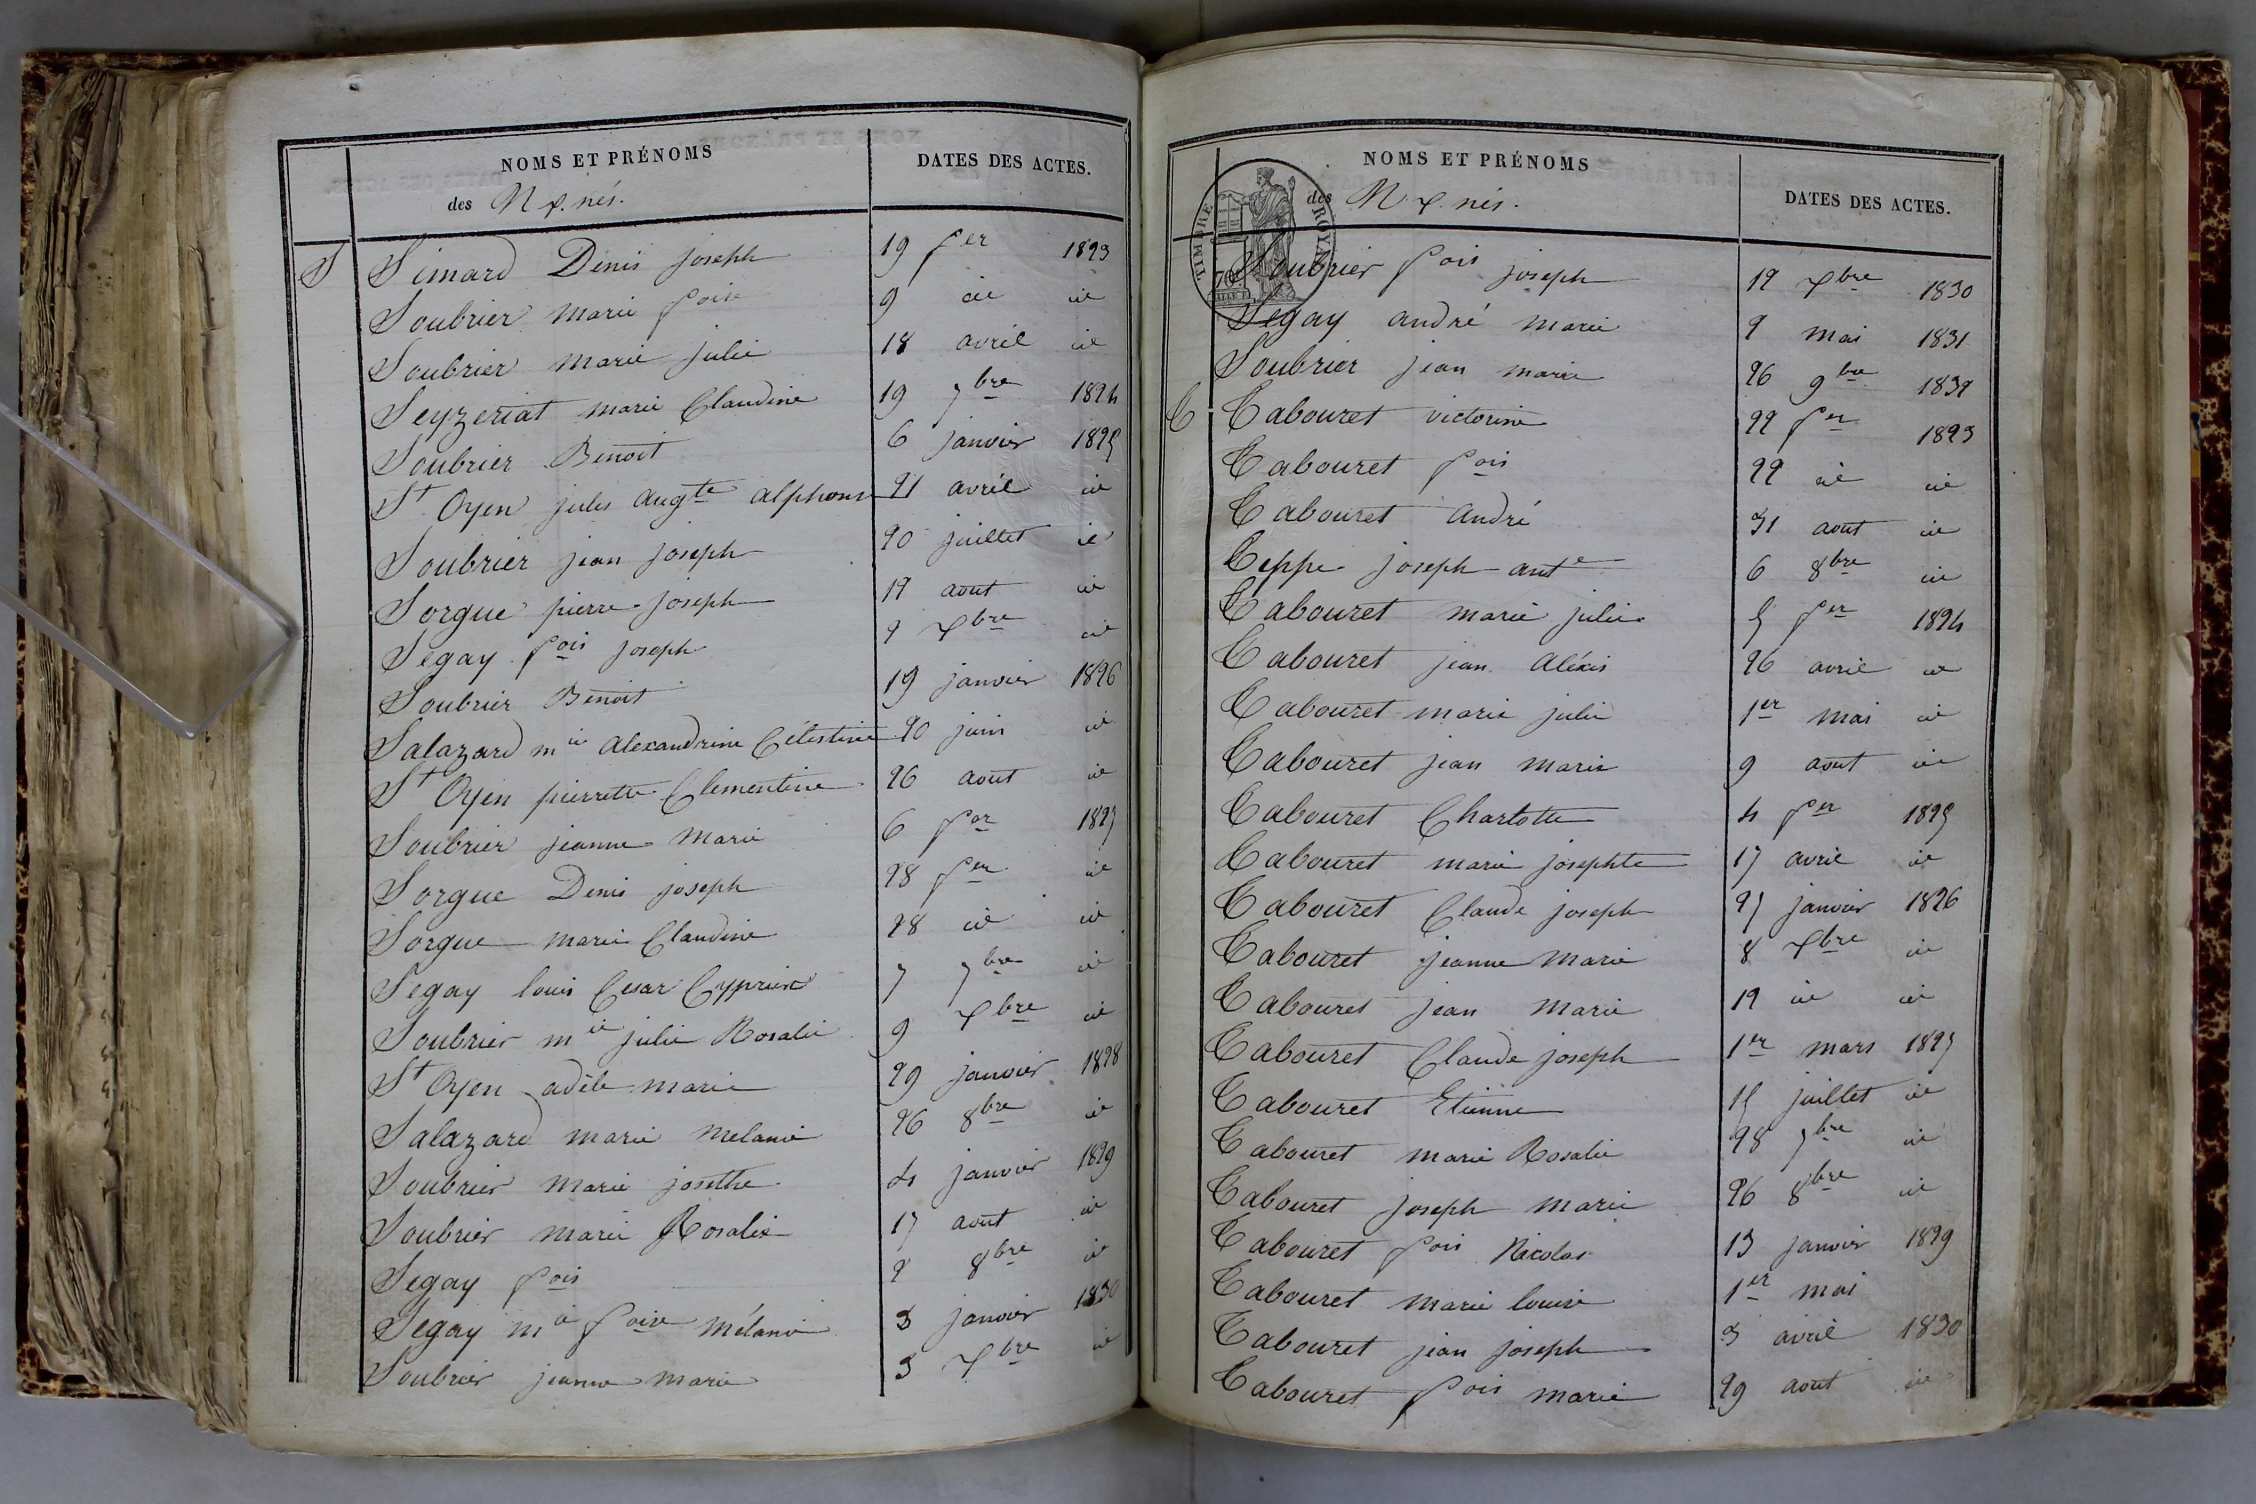 NOMS ET PRÉNOMS
des N. x. nés.
DATES DES ACTES.
S Simard Denis joseph 19 fer 1823
Soubrier marie foise 9 id id
Soubrier marie julie 18 avril id
Seyzeriat marie Claudine 19 7bre 1824
Soubrier Benoit 6 janvier 1825
St Oyen jules augte alphonse 21 avril id
Soubrier jean joseph 20 juillet id
Sorgue pierre joseph 12 aout id
Segay fois joseph 2 xbre id
Soubrier Benoit 19 janvier 1826
Salazard mie alexandrine Célestine 20 juin id
St Oyen pierrette Clementine 26 aout id
Soubrier jeanne marie 6 fer 1827
Sorgue Denis joseph 28 fer id
Sorgue marie Claudine 28 id id
Segay louis Cesar Cyprien 7 7bre id
Soubrier mie julie Rosalie 9 xbre id
St Oyen adèle marie 29 janvier 1828
Salazard marie melanie 26 8bre id
Soubrier marie josethe 4 janvier 1829
Soubrier marie Rosalie 17 aout id
Segay fois 2 8bre id
Segay mie foise mélanie 3 janvier 1830
Soubrier jeanne marie 3 xbre id
NOMS ET PRÉNOMS
des N. x. nés.
DATES DES ACTES.
TIMBRE ROYAL
70
Soubrier fois joseph 12 xbre 1830
Segay andré marie 9 mai 1831
Soubrier jean marie 26 9bre 1832
T Tabouret victorine 22 fer 1823
Tabouret fois 22 id id
Tabouret André 31 aout id
Teppe joseph ante 6 8bre id
Tabouret marie julie 5 fer 1824
Tabouret jean Aléxis 26 avril id
Tabouret marie julie 1er mai id
Tabouret jean marie 9 aout id
Tabouret Charlotte 4 fer 1825
Tabouret marie josephte 17 avril id
Tabouret Claude joseph 27 janvier 1826
Tabouret jeanne marie 8 xbre id
Tabouret jean marie 12 id id
Tabouret Claude joseph 1er mars 1827
Tabouret Etienne 15 juillet id
Tabouret marie Rosalie 28 7bre id
Tabouret joseph marie 26 8bre id
Tabouret fois Nicolas 13 janvier 1829
Tabouret marie louise 1er mai
Tabouret jean joseph 3 avril 1830
Tabouret fois marie 29 aout id